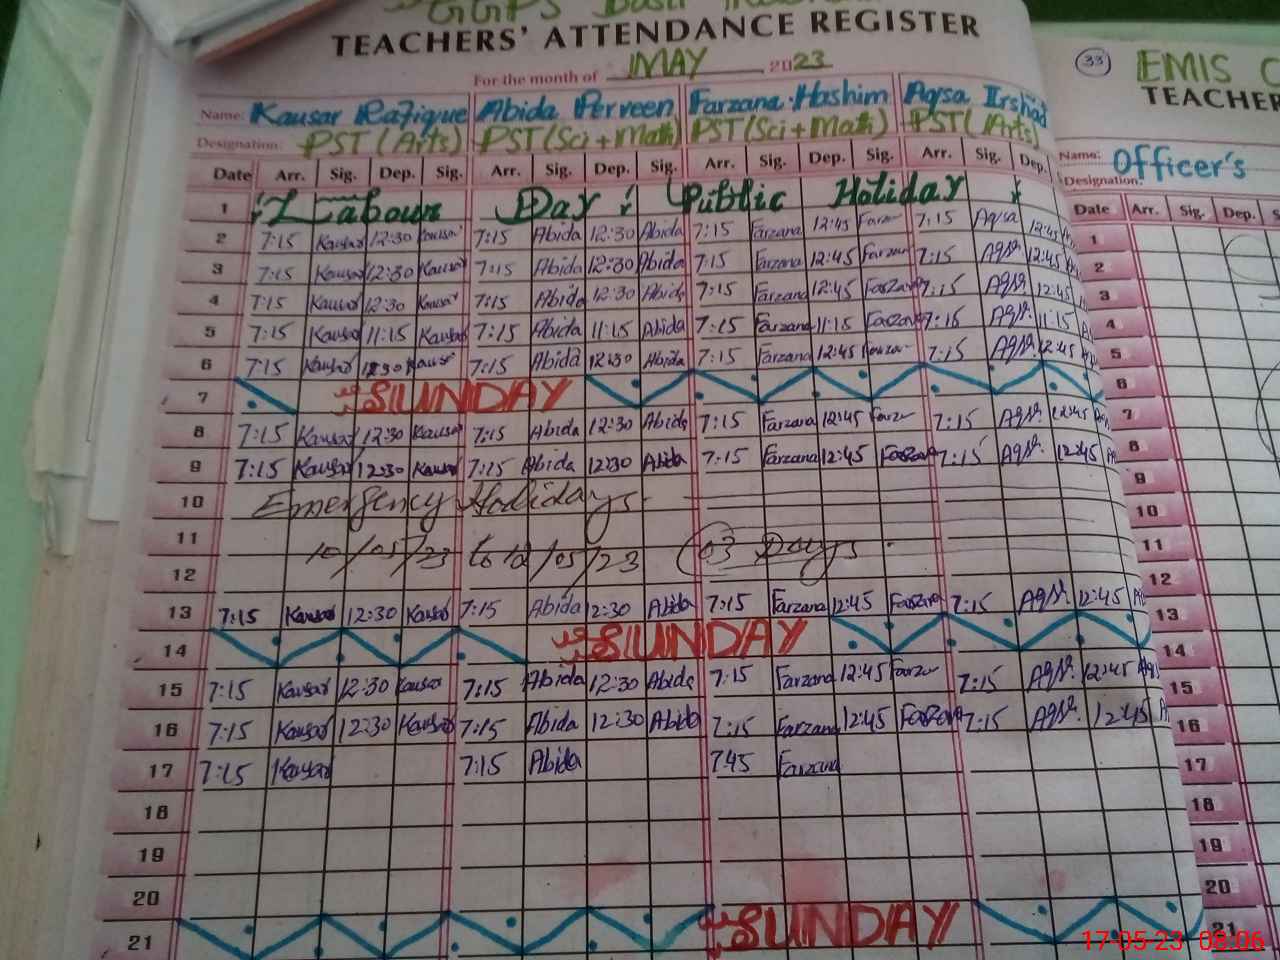 GGPS Basti
TEACHERS' ATTENDANCE REGISTER
For the month of MAY 2023
Name: Kausar Rafique Abida Perveen Farzana Hashim Aqsa Irshad
Designation: PST (Arts) PST (Sci + Math) PST (Sci + Math) PST (Arts)
Date Arr. Sig. Dep. Sig. Arr. Sig. Dep. Sig. Arr. Sig. Dep. Sig. Arr. Sig. Dep.
1 Labour Day Public Holiday
2 7:15 Kausar 12:30 Kausar 7:15 Abida 12:30 Abida 7:15 Farzana 12:45 Farzan 7:15 Aqsa 12:45
3 7:15 Kausar 12:30 Kausar 7:15 Abida 12:30 Abida 7:15 Farzana 12:45 Farzan 7:15 Aqsa 12:45
4 7:15 Kausar 12:30 Kausar 7:15 Abida 12:30 Abida 7:15 Farzana 12:45 Farzana 7:15 Aqsa 12:45
5 7:15 Kausar 11:15 Kausar 7:15 Abida 11:15 Abida 7:15 Farzana 11:15 Farzana 7:15 Aqsa 11:15
6 7:15 Kausar 12:30 Kausar 7:15 Abida 12:30 Abida 7:15 Farzana 12:45 Farzan 7:15 Aqsa 12:45
7 SUNDAY
8 7:15 Kausar 12:30 Kausar 7:15 Abida 12:30 Abida 7:15 Farzana 12:45 Farzan 7:15 Aqsa 12:45
9 7:15 Kausar 12:30 Kausar 7:15 Abida 12:30 Abida 7:15 Farzana 12:45 Farzana 7:15 Aqsa 12:45
10 Emergency Holidays
11 10/05/23 to 12/05/23 (03 Days
12
13 7:15 Kausar 12:30 Kausar 7:15 Abida 12:30 Abida 7:15 Farzana 12:45 Farzana 7:15 Aqsa 12:45
14 SUNDAY
15 7:15 Kausar 12:30 Kausar 7:15 Abida 12:30 Abida 7:15 Farzana 12:45 Farzan 7:15 Aqsa 12:45
16 7:15 Kausar 12:30 Kausar 7:15 Abida 12:30 Abida 7:15 Farzana 12:45 Farzana 7:15 Aqsa 12:45
17 7:15 Kausar 7:15 Abida 7:45 Farzana
18
19
20
21 SUNDAY
33 EMIS
TEACHER
Name: Officer's
Designation:
Date Arr. Sig. Dep.
1
2
3
4
5
6
7
8
9
10
11
12
13
14
15
16
17
18
19
20
21
17-05-23 08:06